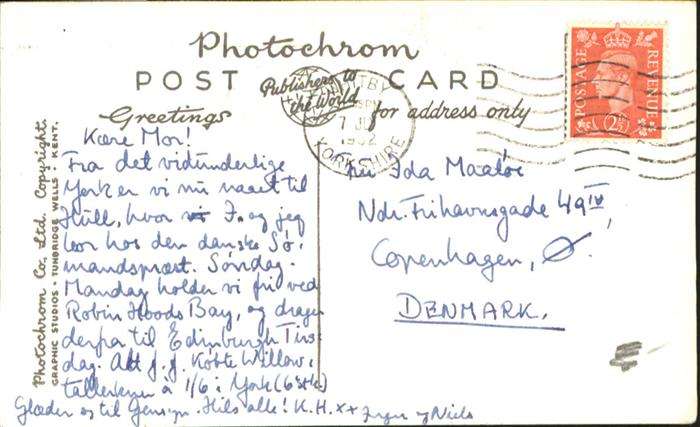 Photochrom
POST CARD
Publishers to
the World
for address only
Greetings
Photochrom Co., Ltd. Copyright.
GRAPHIC STUDIOS • TUNBRIDGE WELLS • KENT.
WHITBY
7 JLY
1952
YORKSHIRE
POSTAGE
REVENUE
2½D
Kære Mor!
Fra det vidunderlige
York er vi nu naaet til
Hull, hvor J. og jeg
bor hos den danske Sø-
mandspræst. Søndag-
Mandag holder vi fri ved
Robin Hoods Bay, og drager
derfra til Edinburgh Tirs-
dag. Købte Willow-
tallerkener à 1/6 i York (6 Stk)
Glæder os til Gensyn. Hils alle! K.H. xx Jørgen og Niels
Fru Ida Maaløe
Ndr. Frihavnsgade 49 IV,
Copenhagen, Ø.
DENMARK.